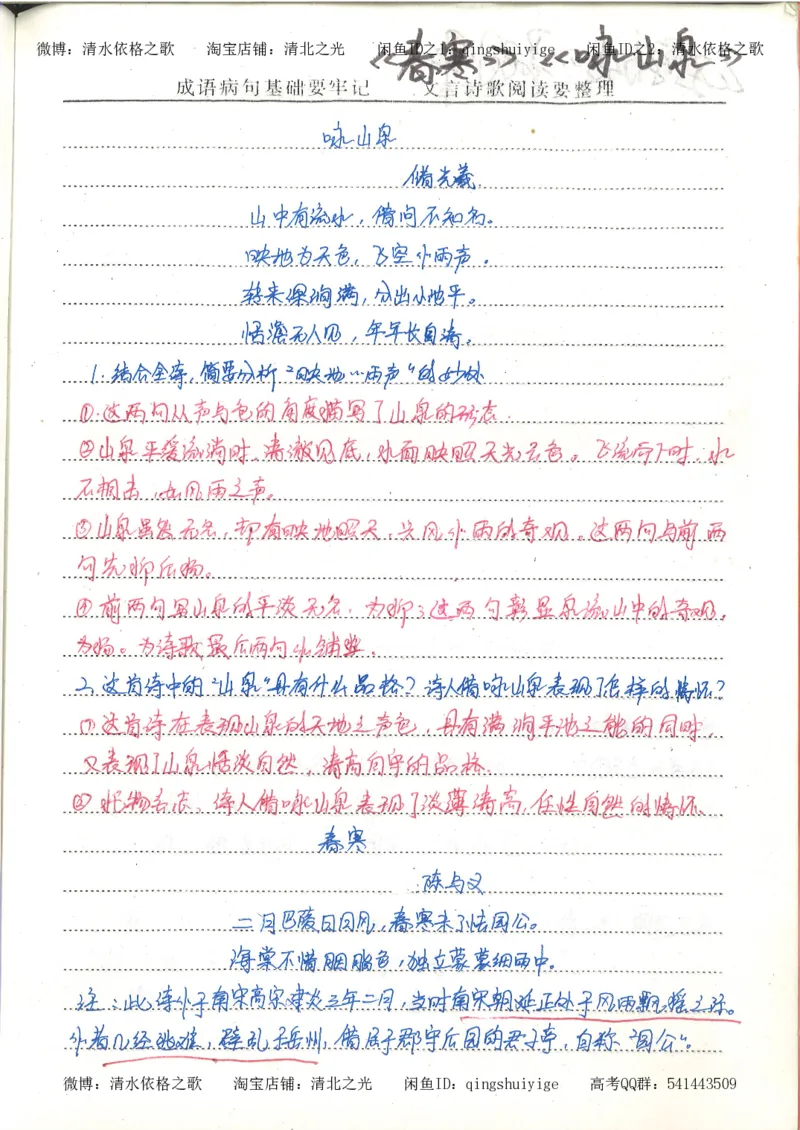 微博：清水依格之歌 淘宝店铺：清北之光 闲鱼ID之1：qingshuiyige 闲鱼ID之2：清水依格之歌
《春寒》《咏山泉》
成语病句基础要牢记 文言诗歌阅读要整理
咏山泉
储光羲
山中有流水，借问不知名。
映地为天色，飞空作雨声。
转来深涧满，分出小池平。
恬澹无人见，年年长自清。
1.结合全诗，简要分析"映地…雨声"的妙处
①这两句从声与色的角度描写了山泉的形态.
②山泉平缓流淌时,清澈见底,水面映照天光天色。飞流而下时,水
石相击,如风雨之声。
③山泉虽然无名,却有映地照天,兴风作雨的奇观。这两句与前两
句先抑后扬。
④前两句写山泉的平淡无名,为抑;这两句彰显泉流山中的奇观,
为扬。为诗歌最后两句作铺垫.
2.这首诗中的"山泉"具有什么品格？诗人借咏山泉表现了怎样的情怀？
①这首诗在表现山泉的天地之声色,具有满涧平池之能的同时,
又表现了山泉恬淡自然,清高自守的品格.
②托物言志,诗人借咏山泉表现了淡薄清高,任性自然的情怀.
春寒
陈与义
二月巴陵日日风,春寒未了怯园公。
海棠不惜胭脂色,独立蒙蒙细雨中。
注：此诗作于南宋高宗建炎三年二月,当时南宋朝廷正处于风雨飘摇之际。
作者几经逃难,避乱于岳州,借居于郡守后园的君子亭,自称"园公"。
微博：清水依格之歌 淘宝店铺：清北之光 闲鱼ID：qingshuiyige 高考QQ群：541443509